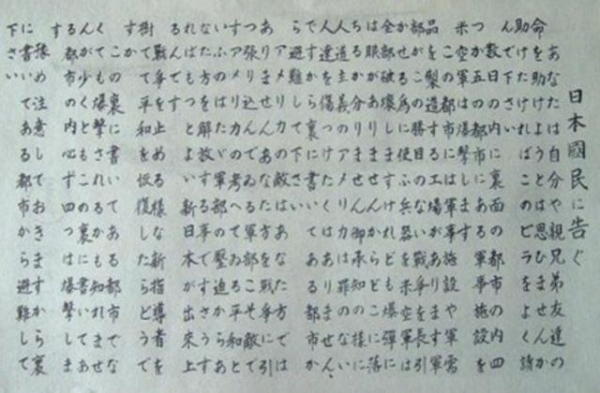 日本國民に告ぐ
あなたは自分や親兄弟友達の
命を助けようとは思ひませんか
助けたければこのビラをよく讀
んで下さい
数日の内に裏面の都市の内四
つか五つの都市にある軍事施設を
米空軍は爆撃します
この都市には軍事施設や軍需
品を製造する工場があります軍
部はこの勝目のない戦争を長引
かせる為に使ふ兵器を米空軍は
全部破壊しますけれども爆弾に
は眼がありませんからどこに落
ちるか分りません御承知の様に
人道主義のアメリカは罪のない
人達を傷つけたくはありません
ですから裏に書いてある都市か
ら避難して下さい
アメリカの敵はあなた方では
ありませんあなた方を戦争に引
っ張り込んでゐる軍部こそ敵で
すアメリカの考へてゐる平和と
いふのはたゞ軍部の壓迫からあ
なた方を解放する事ですさうす
ればもっとよい新日本が出来上
るんです
戦争を止める様な新指導者を
樹てて平和を恢復したらどうで
すか
この裏に書いてある都市でな
くても爆撃されるかも知れませ
んが少くともこの裏に書いてあ
る都市の内必ず四つは爆撃しま
す
予め注意しておきますから裏
に書いてある都市から避難して
下さい